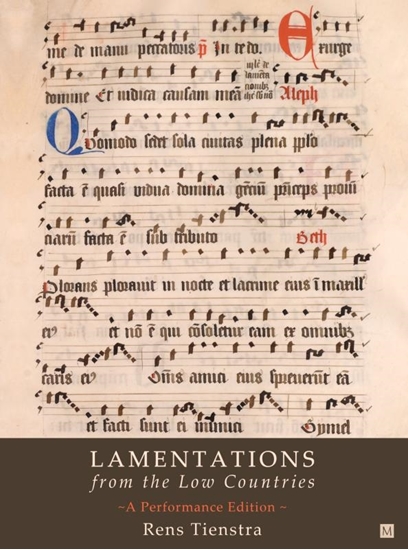 me de manu peccatoris p̃ In te do. Exurge
domine Et iudica causam meã Aleph
Quomodo sedet sola ciuitas plena pplo
facta ẽ quasi vidua domina gẽciũ prĩceps prouĩ
ciarũ facta ẽ sub tributo Beth
Plorans plorauit in nocte et lacrime eius ĩ maxill
ei9 et nõ ẽ qui cõsoletur eam ex omnibz
caris ei9 Om̃s amici eius spreuerũt eã
et facti sunt ei inimici Gymel
LAMENTATIONS
from the Low Countries
~A Performance Edition ~
Rens Tienstra
M